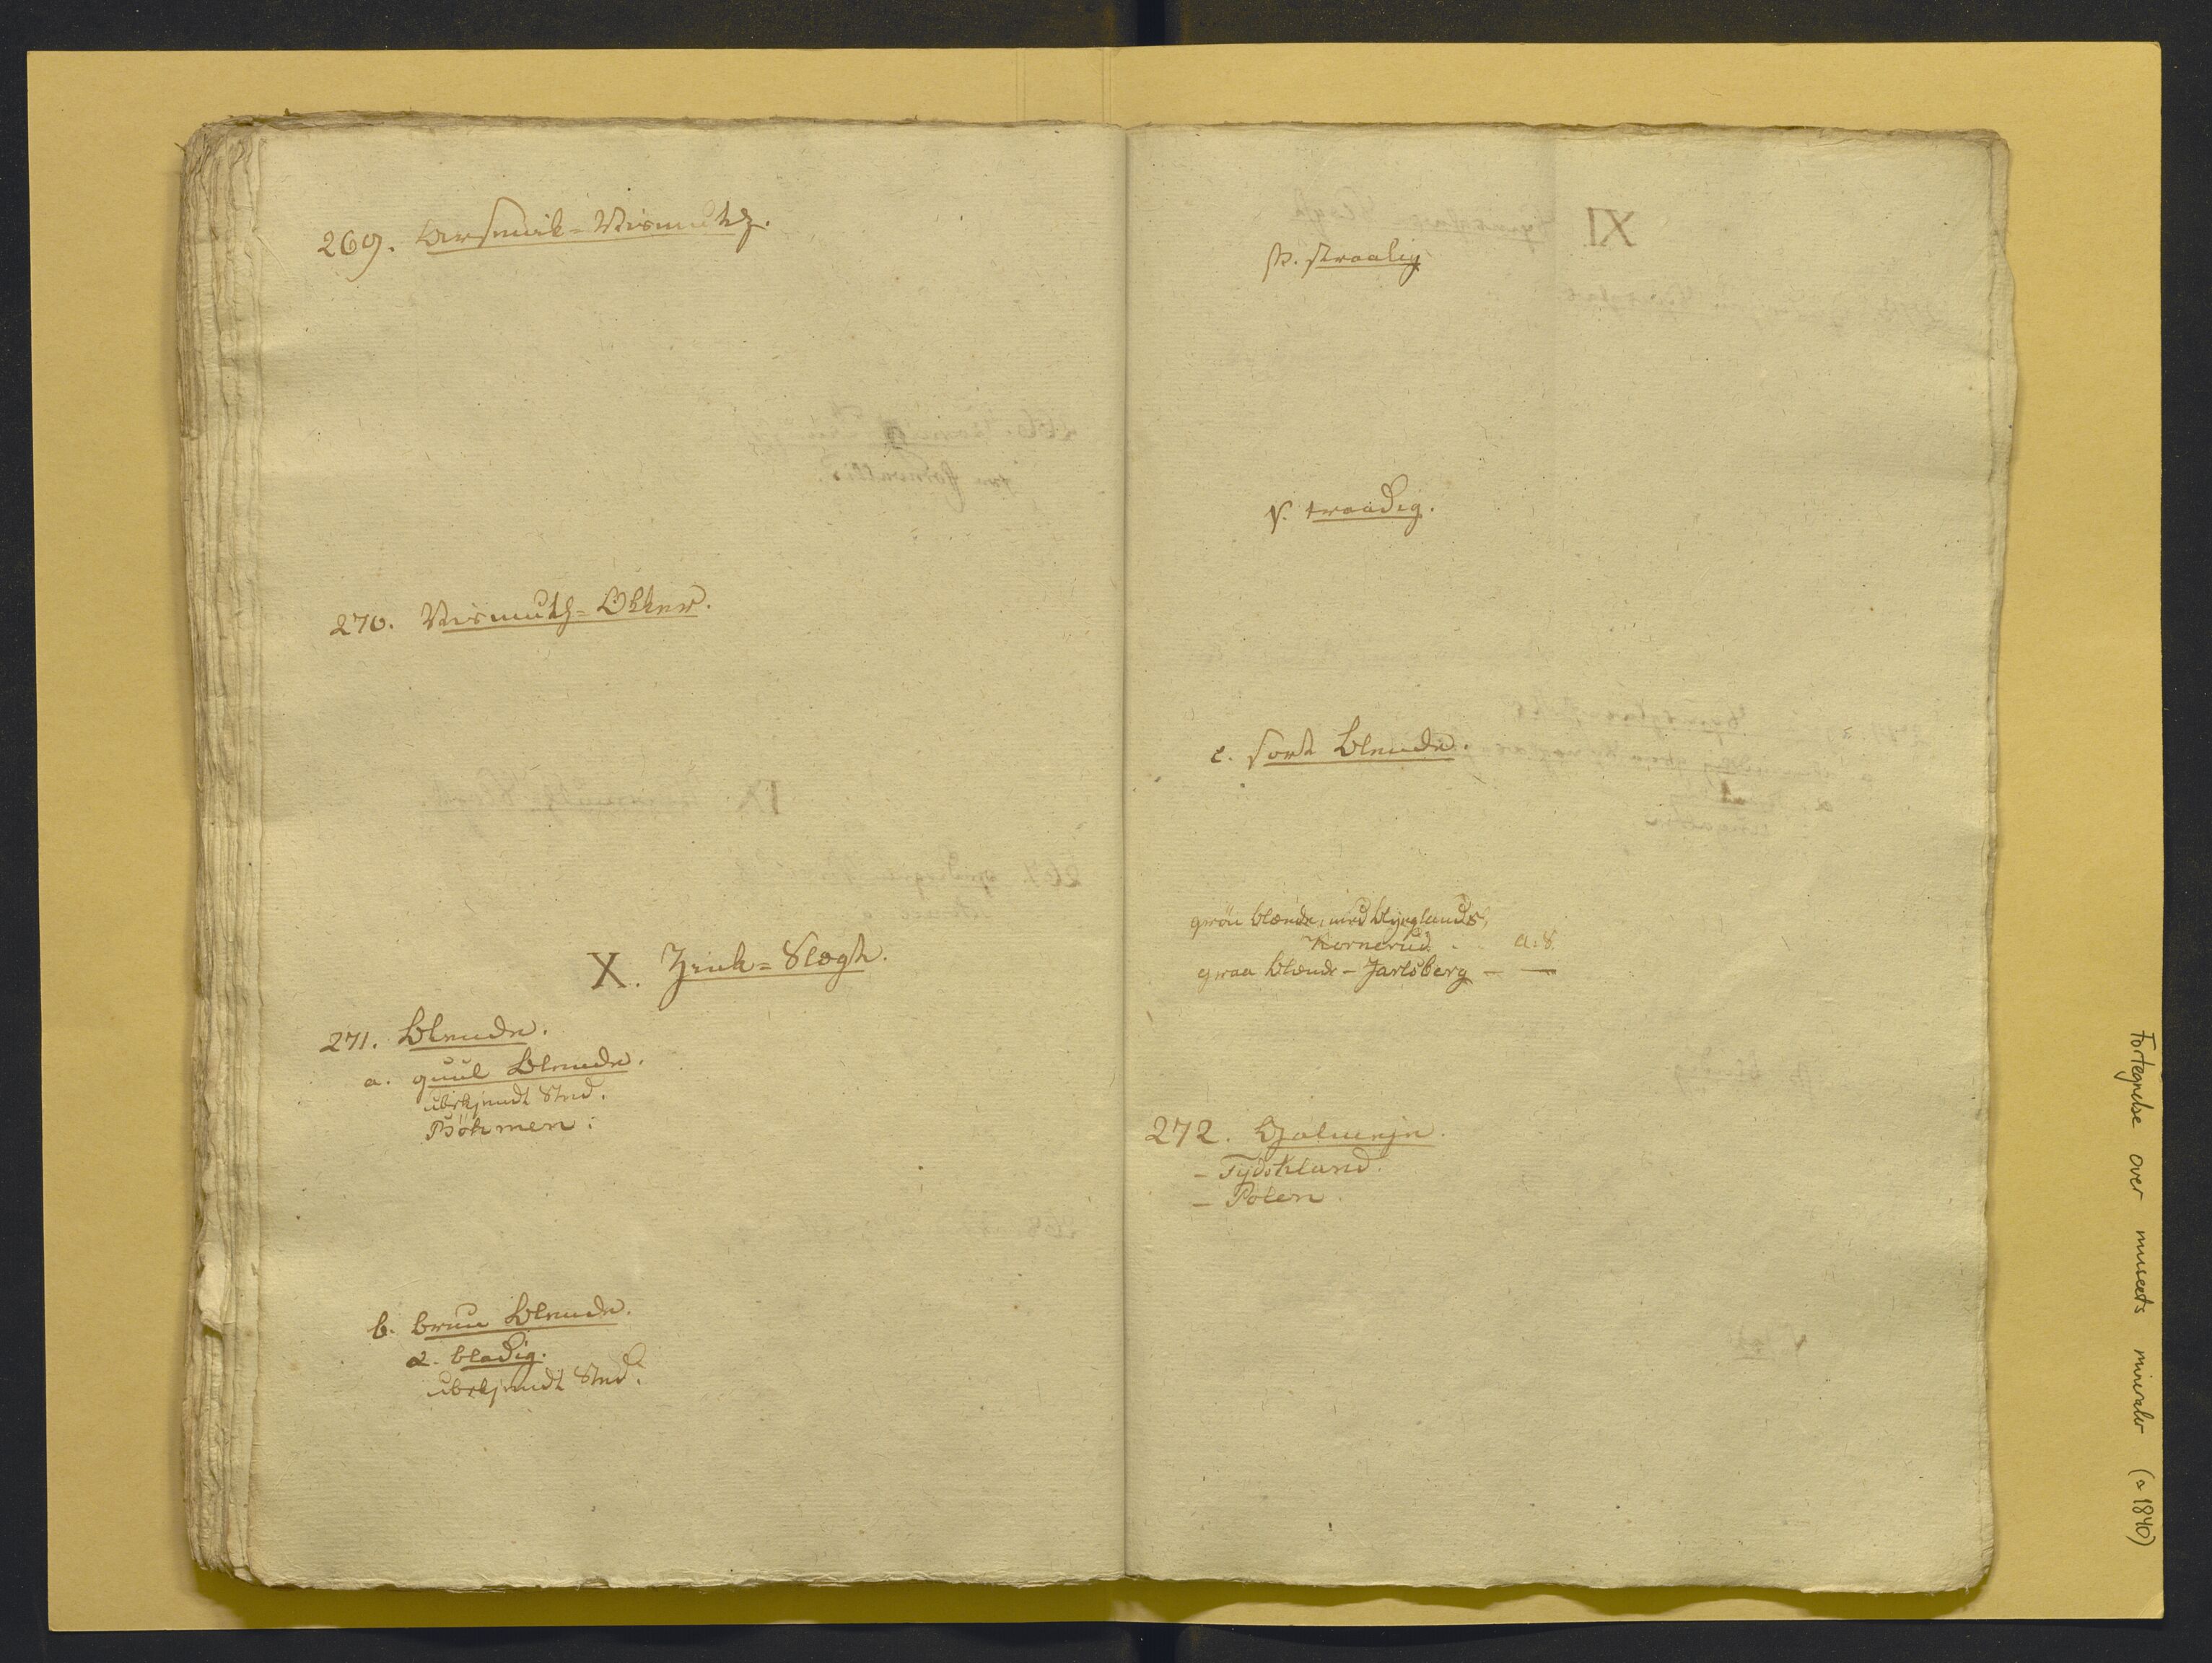 269. Arsenik-Vismuth.
270. Vismuth-Okker.
X. Zink-Slægt.
271. Blende.
a. guul Blende.
ubekjendt Sted.
Böhmen.
b. bruun Blende.
α. bladig.
ubekjendt Sted.
β. straalig
γ. traadig.
c. sort Blende.
grön blænde, med blyeglands,
Kornerud. a. 8.
graa blænde - Jarlsberg — —
272. Galmeje.
- Tydskland.
- Polen.
Fortegnelse over museets mineraler (~ 1840)